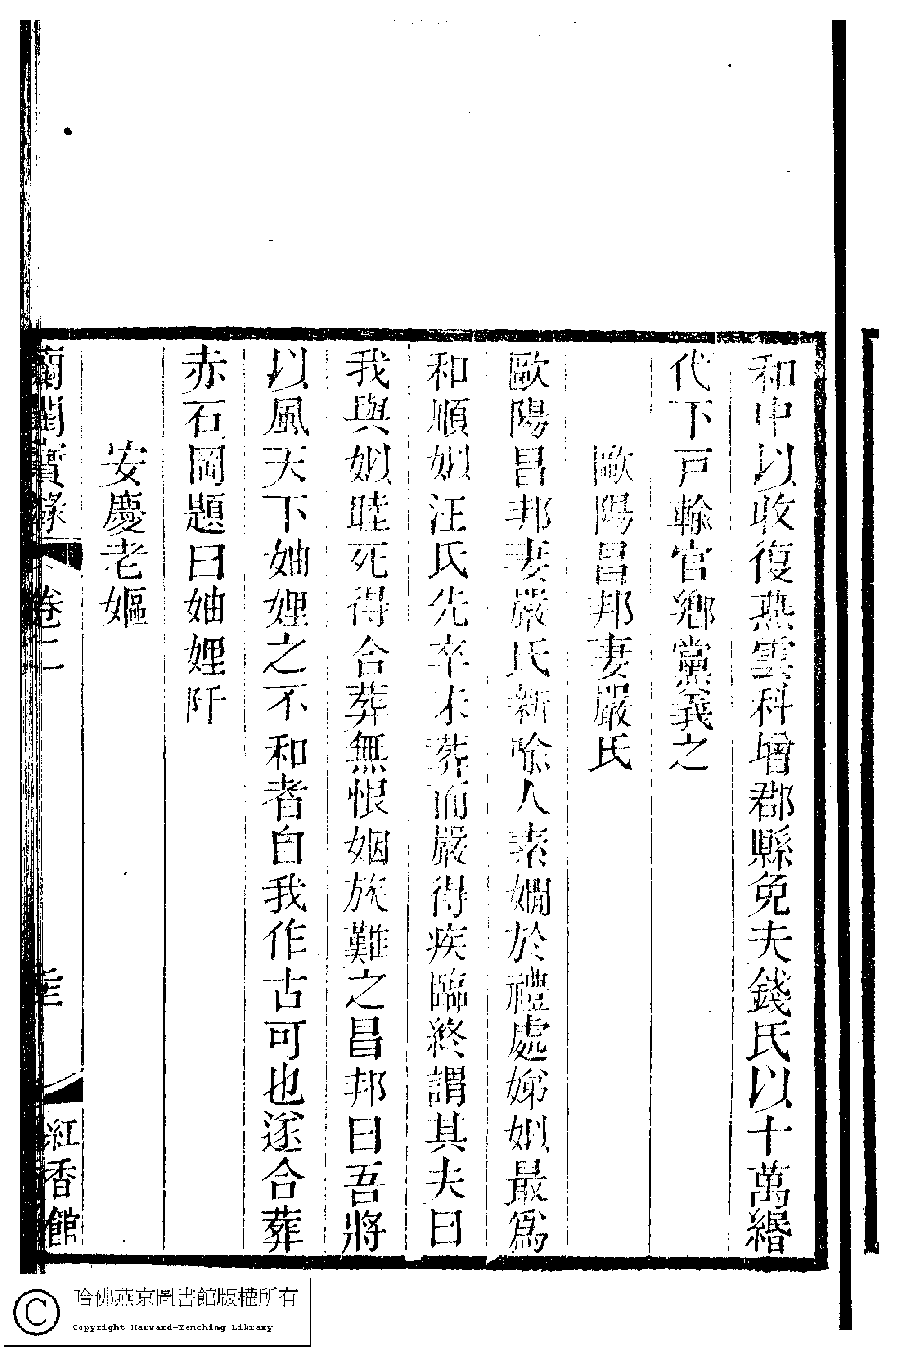 和中以收復燕雲科增郡縣免夫錢氏以十萬緡
代下戸輸官鄉黨義之
歐陽昌邦妻嚴氏
歐陽昌邦妻嚴氏新喻人素嫺於禮處娣姒最爲
和順姒汪氏先卒未葬而嚴得疾臨終謂其夫曰
我與姒睦死得合葬無恨姻族難之昌邦曰吾將
以風天下妯娌之不和者自我作古可也遂合葬
赤石岡題曰妯娌阡
安慶老嫗
蘭閨寶錄 卷二 紅香館
哈佛燕京圖書館版權所有
Copyright Harvard-Yenching Library